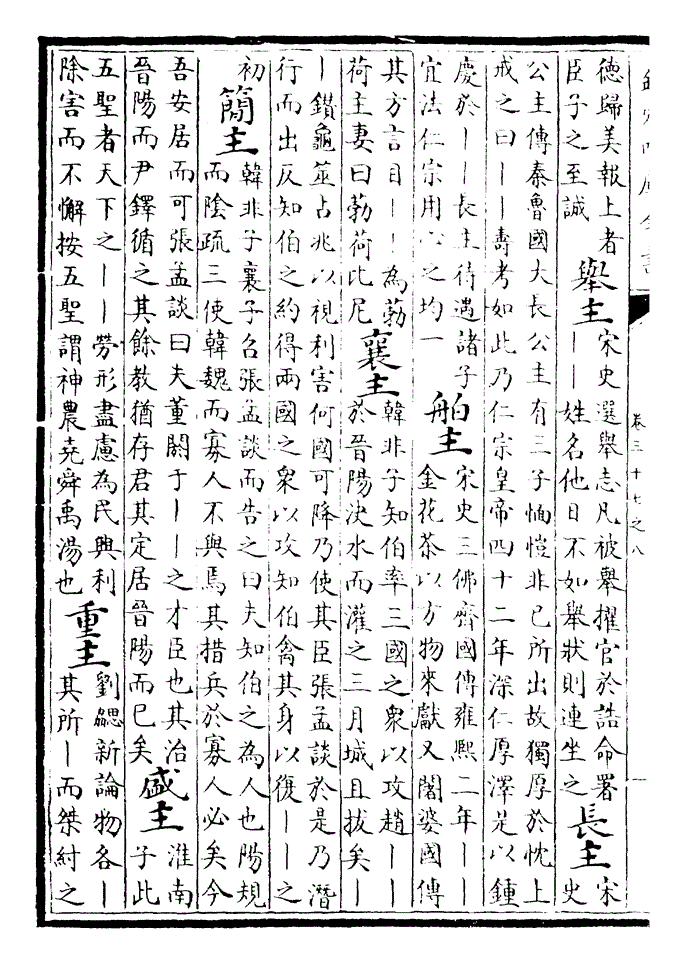 卷三十七之八
德歸美報上者
臣子之至誠
舉主
宋史選舉志凡被舉擢官於誥命署
——姓名他日不如舉狀則連坐之
長主
宋
史
公主傳秦魯國大長公主有三子愐愷非已所出故獨厚於忱上
戒之曰——壽考如此乃仁宗皇帝四十二年深仁厚澤是以鍾
慶於——長主待遇諸子
宜法仁宗用心之均一
舶主
宋史三佛齊國傳雍熙二年——
金花茶以方物來獻又闍婆國傳
其方言目——為葧
荷主妻曰葧荷比尼
襄主
韓非子知伯率三國之衆以攻趙——
於晉陽決水而灌之三月城且拔矣—
—鑚龜筮占兆以視利害何國可降乃使其臣張孟談於是乃潛
行而出反知伯之約得兩國之衆以攻知伯禽其身以復——之
初
簡主
韓非子襄子召張孟談而告之曰夫知伯之為人也陽規
而陰疏三使韓魏而寡人不與焉其措兵於寡人必矣今
吾安居而可張孟談曰夫董閼于——之才臣也其治
晉陽而尹鐸循之其餘教猶存君其定居晉陽而已矣
盛主
淮南
子此
五聖者天下之——勞形盡慮為民興利
除害而不懈按五聖謂神農堯舜禹湯也
重主
劉勰新論物各—
其所—而桀紂之